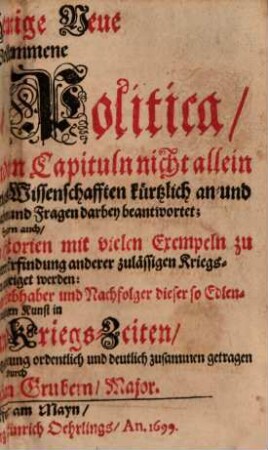 nige Neue
kommene
Politica/
en Capituln nicht allein
Wissenschafften kürtzlich an und
und Fragen darbey beantwortet;
auch/
torien mit vielen Exempeln zu
Erfindung anderer zulässigen Kriegs-
riget werden:
ebhaber und Nachfolger dieser so Edlen-
Kunst in
Kriegs-Zeiten/
ung ordentlich und deutlich zusammen getragen
durch
Grubern/ Major.
am Mayn/
inrich Oehrlings/ An. 1699.